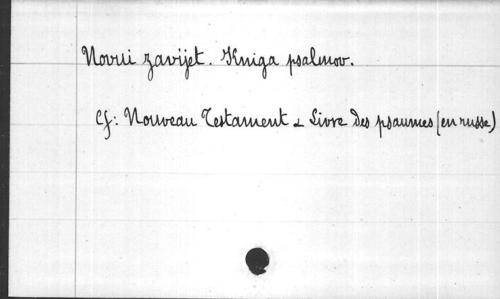 Novii zavijet. Kniga psalmov.
Cf: Nouveau Testament & Livre des psaumes (en russe)